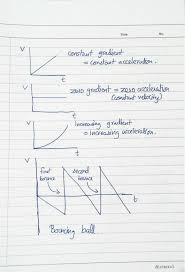 Date: No:
V
constant gradient
= constant acceleration.
t
V
zero gradient = zero acceleration
(constant velocity)
t
V
Increasing gradient
= increasing acceleration.
t
V
first bounce
second bounce
t
Bouncing ball